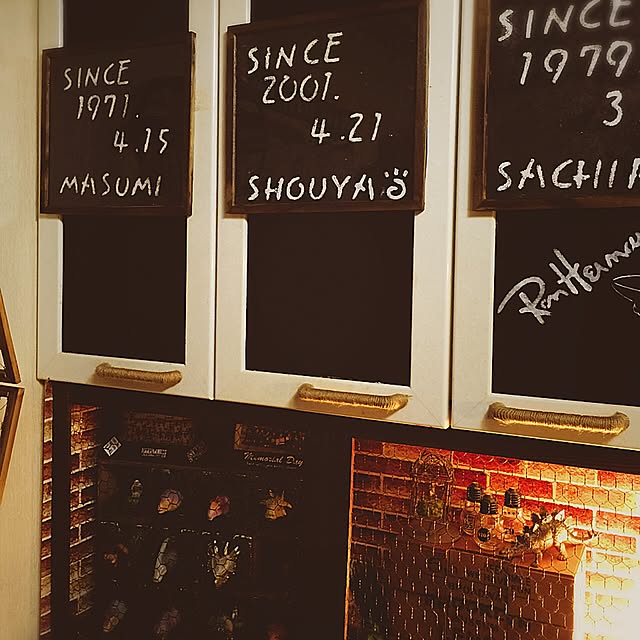 SINCE
1971.
4.15
MASUMI
SINCE
2001.
4.21
SHOUYA
SINCE
1979
3
Memorial Day